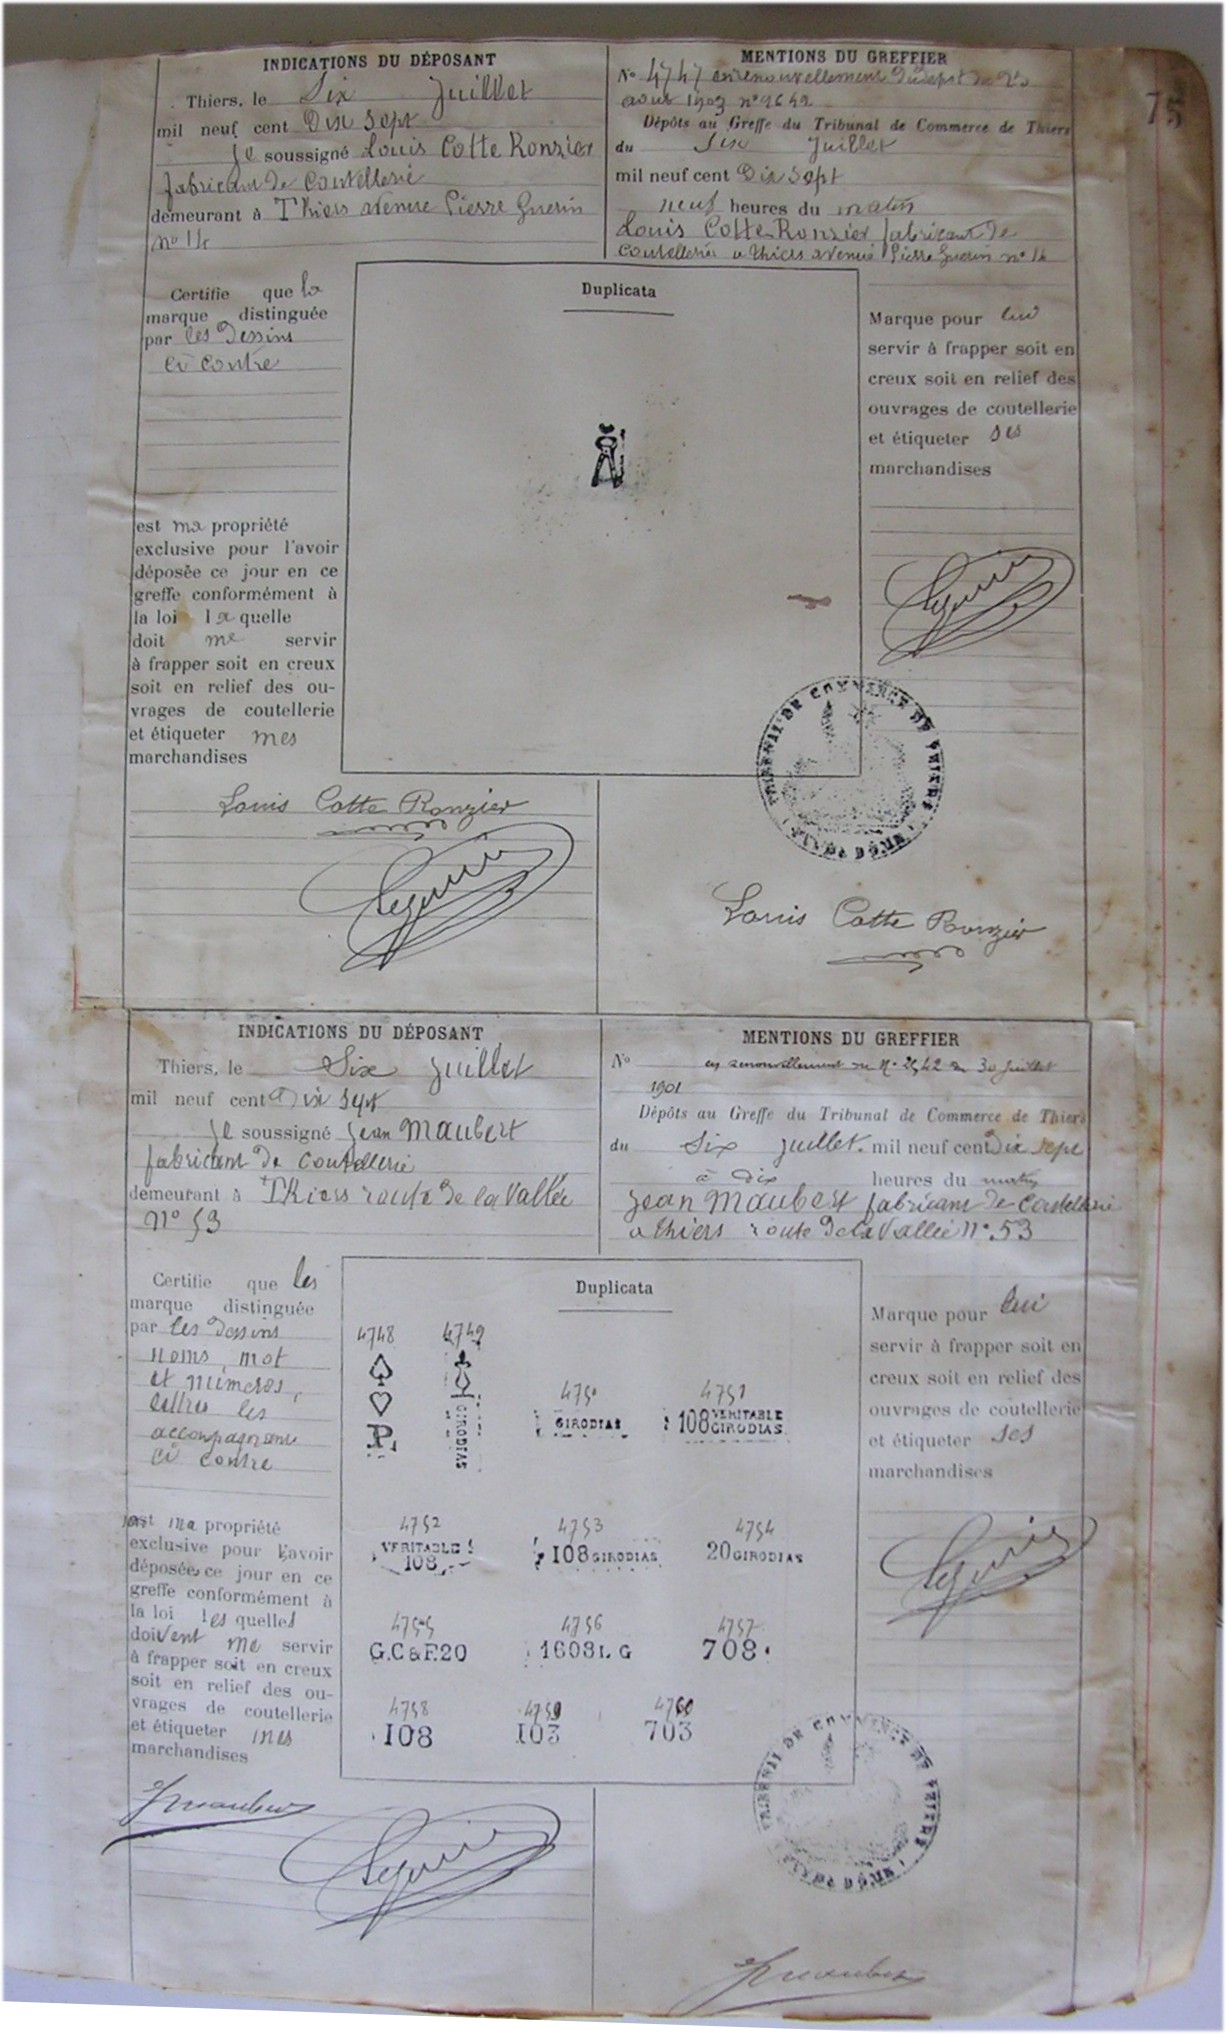 75
INDICATIONS DU DÉPOSANT
Thiers, le Six Juillet
mil neuf cent Dix sept
Je soussigné Louis Cotte Ronzier
fabricant de coutellerie
demeurant à Thiers avenue Pierre Guerin
n° 14
MENTIONS DU GREFFIER
N° 4747 en renouvellement du depot du
aout 1903 n° 2642
Dépôts au Greffe du Tribunal de Commerce de Thiers
du Six Juillet
mil neuf cent Dix sept
neuf heures du matin
Louis Cotte Ronzier fabricant de
coutellerie a thiers avenue Pierre Guerin n° 14
Certifie que la
marque distinguée
par les Dessins
ci contre
est ma propriété
exclusive pour l'avoir
déposée ce jour en ce
greffe conformément à
la loi la quelle
doit me servir
à frapper soit en creux
soit en relief des ou-
vrages de coutellerie
et étiqueter mes
marchandises
Duplicata
Marque pour lui
servir à frapper soit en
creux soit en relief des
ouvrages de coutellerie
et étiqueter ses
marchandises
TRIBUNAL DE COMMERCE DE THIERS
(PUY DE DÔME)
Louis Cotte Ronzier
Louis Cotte Ronzier
INDICATIONS DU DÉPOSANT
Thiers, le Six Juillet
mil neuf cent Dix sept
Je soussigné Jean Maubert
fabricant de coutellerie
demeurant à Thiers route de la Vallée
N° 53
MENTIONS DU GREFFIER
N° en renouvellement du N° 2542 du 30 Juillet
1901
Dépôts au Greffe du Tribunal de Commerce de Thiers
du Six Juillet. mil neuf cent Dix sept
à dix heures du matin
Jean Maubert fabricant de coutellerie
a thiers route de la Vallée N° 53
Certifie que les
marque distinguée
par les Dessins
noms, mot
et numeros,
lettres les
accompagnant
ci contre
est ma propriété
exclusive pour l'avoir
déposées ce jour en ce
greffe conformément à
la loi les quelles
doivent me servir
à frapper soit en creux
soit en relief des ou-
vrages de coutellerie
et étiqueter mes
marchandises
Duplicata
4748 4749
P
GIRODIAS
4750 4751
GIRODIAS 108 VERITABLE GIRODIAS
4752 4753 4754
VERITABLE 108 108 GIRODIAS 20 GIRODIAS
4755 4756 4757
G.C & F.20 1608 L G 708
4758 4759 4760
108 103 703
Marque pour lui
servir à frapper soit en
creux soit en relief des
ouvrages de coutellerie
et étiqueter ses
marchandises
TRIBUNAL DE COMMERCE DE THIERS
(PUY DE DÔME)
JMaubert
JMaubert